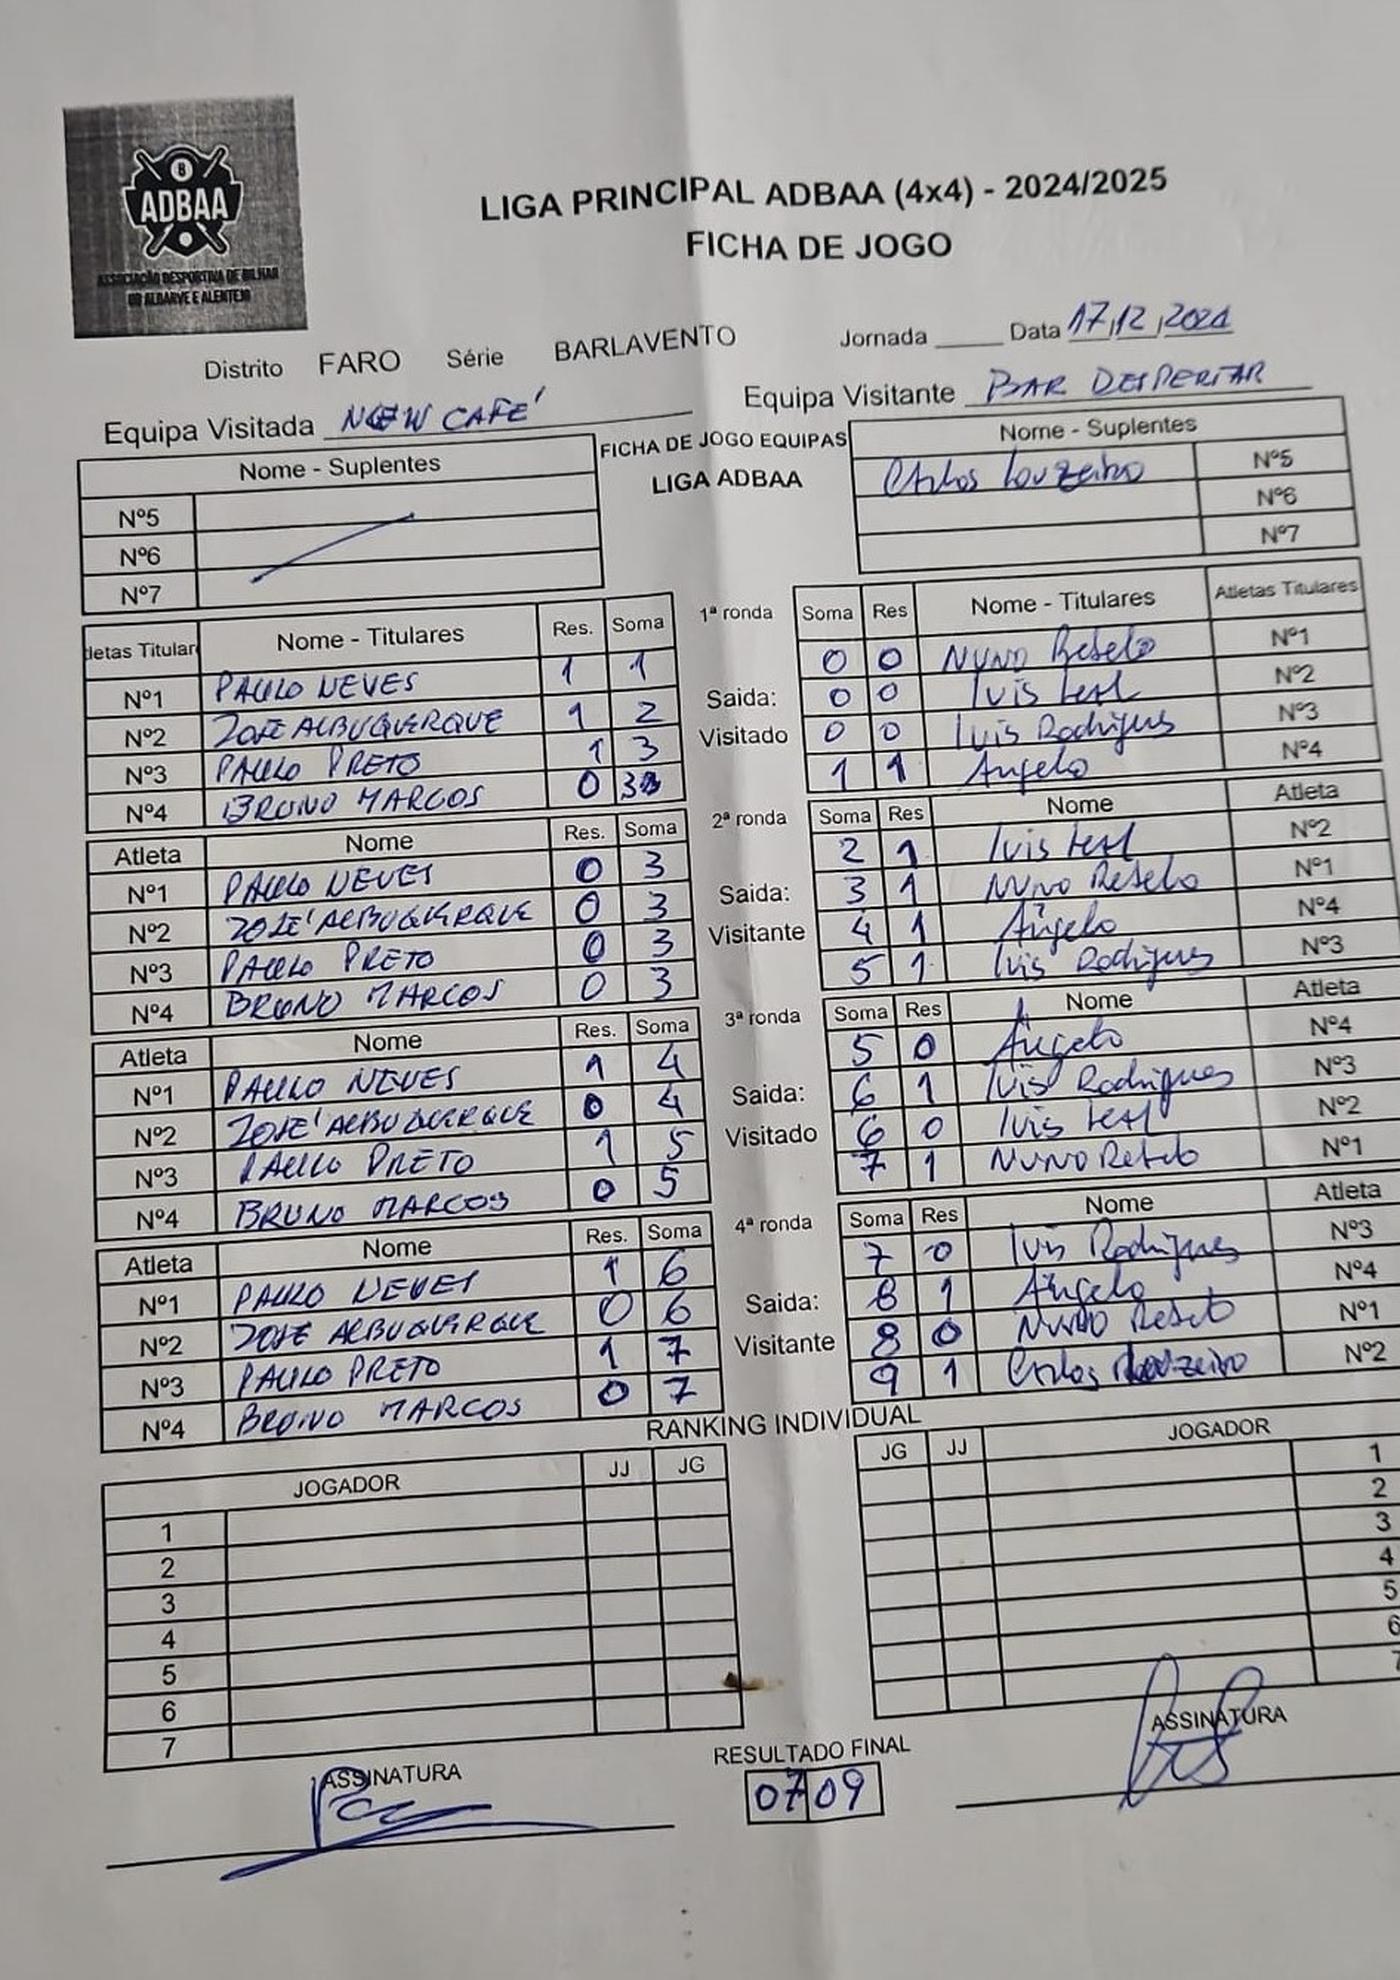 8
ADBAA
ASSOCIAÇÃO DESPORTIVA DE BILHAR
DO ALGARVE E ALENTEJO
LIGA PRINCIPAL ADBAA (4x4) - 2024/2025
FICHA DE JOGO
Distrito FARO Série BARLAVENTO Jornada ____ Data 17/12/2024
Equipa Visitada NEW CAFÉ Equipa Visitante BAR DESPERTAR
Nome - Suplentes FICHA DE JOGO EQUIPAS Nome - Suplentes
LIGA ADBAA
Nº5 Carlos Louzeiro Nº5
Nº6 Nº6
Nº7 Nº7
letas Titular Nome - Titulares Res. Soma 1ª ronda Soma Res Nome - Titulares Atletas Titulares
Nº1 PAULO NEVES 1 1 0 0 NUNO Rebelo Nº1
Nº2 JOSÉ ALBUQUERQUE 1 2 Saida: 0 0 Luis Leal Nº2
Nº3 PAULO PRETO 1 3 Visitado 0 0 Luis Rodrigues Nº3
Nº4 BRUNO MARCOS 0 3 1 1 Angelo Nº4
Atleta Nome Res. Soma 2ª ronda Soma Res Nome Atleta
Nº1 PAULO NEVES 0 3 2 1 Luis Leal Nº2
Nº2 JOSÉ ALBUQUERQUE 0 3 Saida: 3 1 NUNO Rebelo Nº1
Nº3 PAULO PRETO 0 3 Visitante 4 1 Angelo Nº4
Nº4 BRUNO MARCOS 0 3 5 1 Luis Rodrigues Nº3
Atleta Nome Res. Soma 3ª ronda Soma Res Nome Atleta
Nº1 PAULO NEVES 1 4 5 0 Angelo Nº4
Nº2 JOSÉ ALBUQUERQUE 0 4 Saida: 6 1 Luis Rodrigues Nº3
Nº3 PAULO PRETO 1 5 Visitado 6 0 Luis Leal Nº2
Nº4 BRUNO MARCOS 0 5 7 1 NUNO Rebelo Nº1
Atleta Nome Res. Soma 4ª ronda Soma Res Nome Atleta
Nº1 PAULO NEVES 1 6 7 0 Luis Rodrigues Nº3
Nº2 JOSÉ ALBUQUERQUE 0 6 Saida: 8 1 Angelo Nº4
Nº3 PAULO PRETO 1 7 Visitante 8 0 NUNO Rebelo Nº1
Nº4 BRUNO MARCOS 0 7 9 1 Carlos Louzeiro Nº2
RANKING INDIVIDUAL
JOGADOR JJ JG JG JJ JOGADOR
1 1
2 2
3 3
4 4
5 5
6 6
7 7
ASSINATURA RESULTADO FINAL ASSINATURA
07 09